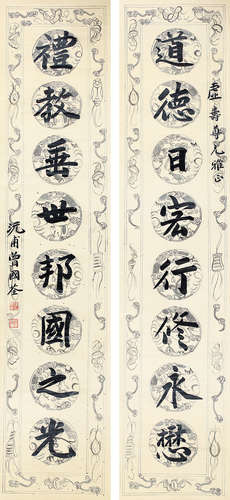 壽尊兄雅正
道德日宏行修永懋
禮教垂世邦國之光
沅甫曾國荃